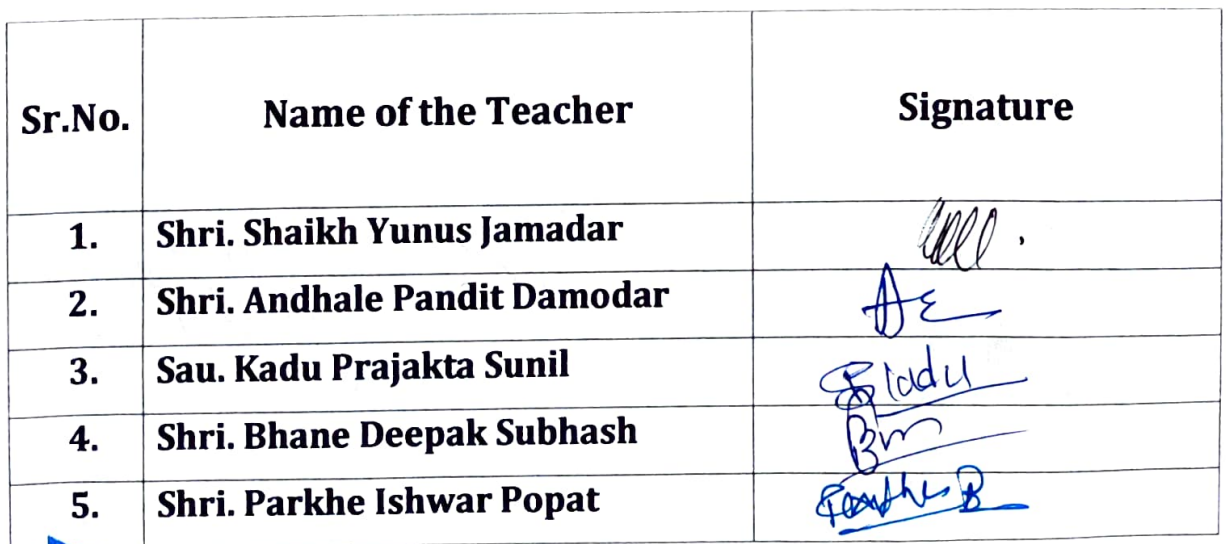 Sr.No. Name of the Teacher Signature
1. Shri. Shaikh Yunus Jamadar
2. Shri. Andhale Pandit Damodar
3. Sau. Kadu Prajakta Sunil
4. Shri. Bhane Deepak Subhash
5. Shri. Parkhe Ishwar Popat